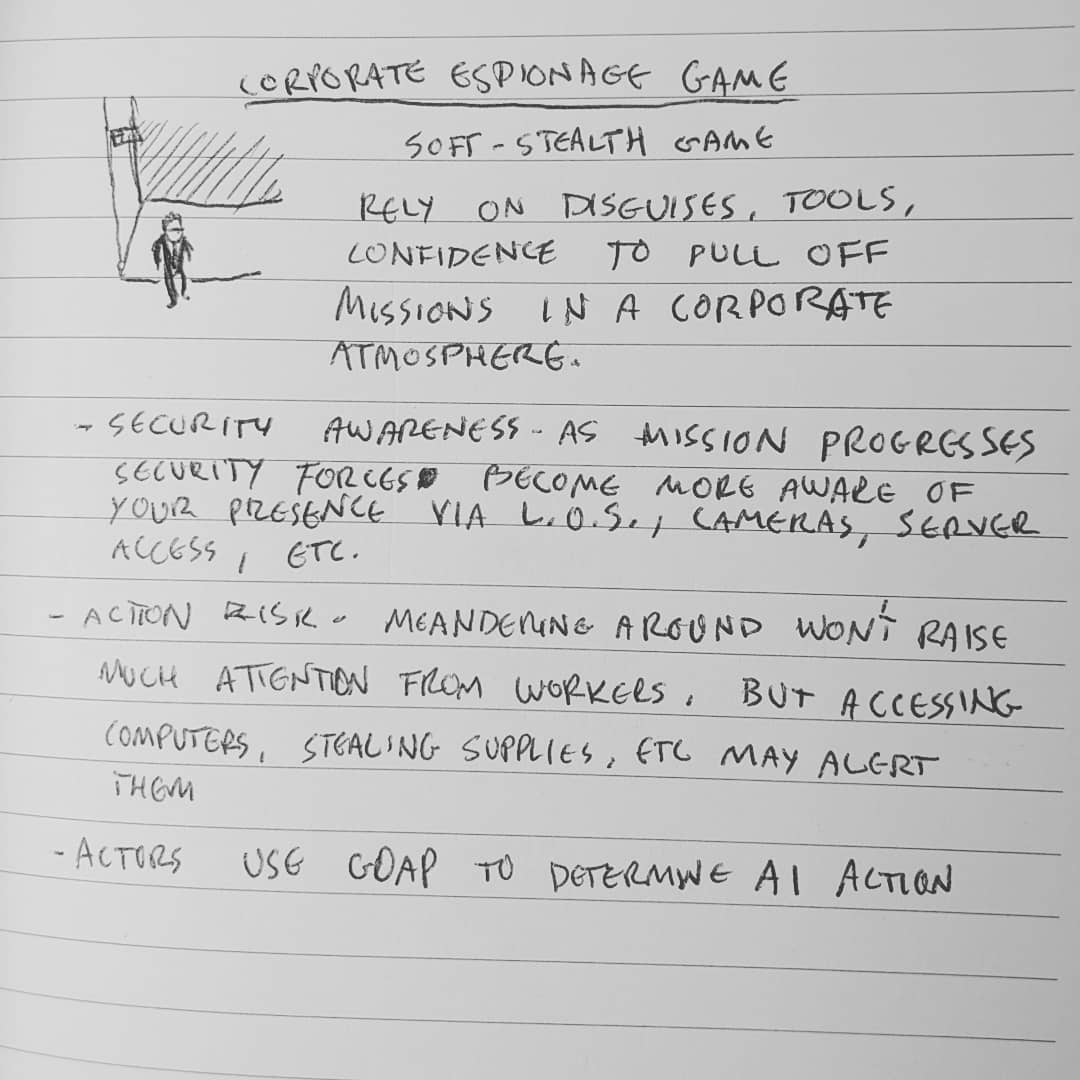 CORPORATE ESPIONAGE GAME
SOFT-STEALTH GAME
RELY ON DISGUISES, TOOLS,
CONFIDENCE TO PULL OFF
MISSIONS IN A CORPORATE
ATMOSPHERE.
- SECURITY AWARENESS - AS MISSION PROGRESSES
SECURITY FORCES BECOME MORE AWARE OF
YOUR PRESENCE VIA L.O.S., CAMERAS, SERVER
ACCESS, ETC.
- ACTION RISK - MEANDERING AROUND WON'T RAISE
MUCH ATTENTION FROM WORKERS, BUT ACCESSING
COMPUTERS, STEALING SUPPLIES, ETC MAY ALERT
THEM
- ACTORS USE GOAP TO DETERMINE AI ACTION